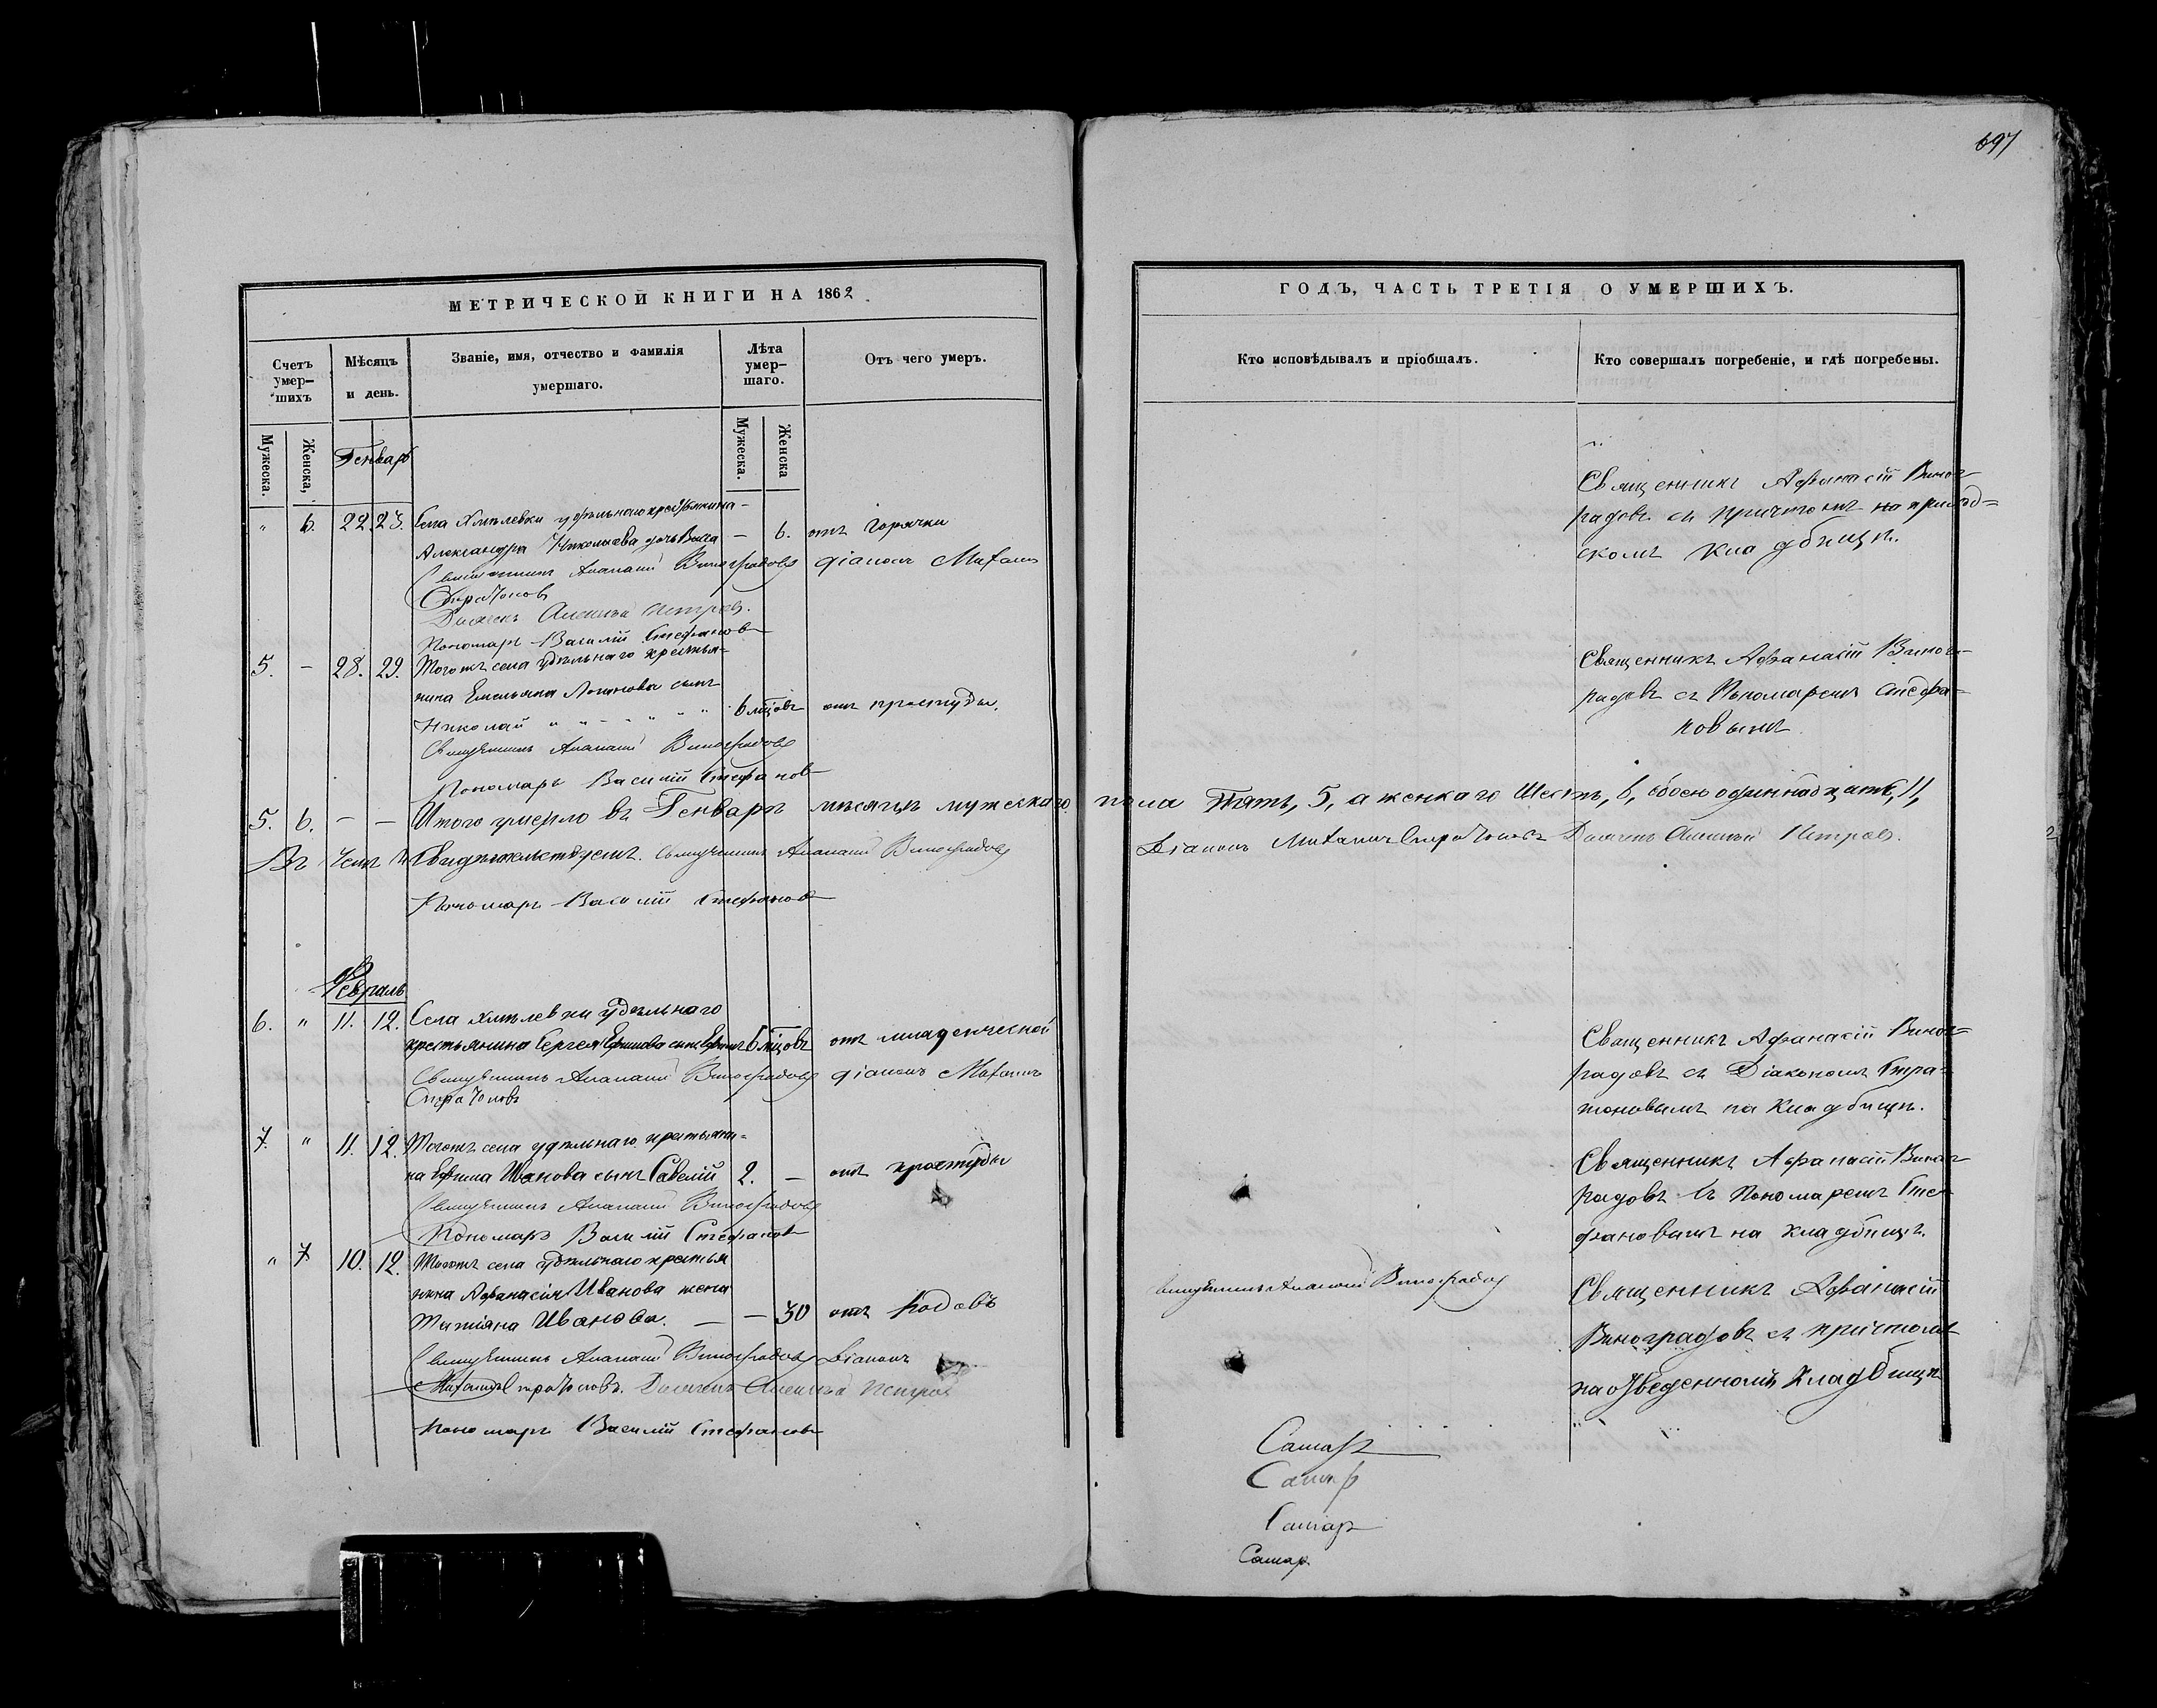 697
МЕТРИЧЕСКОЙ КНИГИ НА 1862
Счетъ умер-шихъ
Мѣсяцъ и день.
Званіе, имя, отчество и фамилія умершаго.
Лѣта умер-шаго.
Отъ чего умеръ.
Мужеска.
Женска,
Мужеска.
Женска
Генварь
" 6. 22. 23. Села Хмѣлевки удѣльнаго крестьянина
Александра Николаева дочь — 6. отъ горячки
Священникъ Аѳанасій Виноградовъ діаконъ
Стратоновъ
Дьячекъ Алексѣй Петровъ.
Пономарь Василій Стефановъ
5. - 28. 29. Тогожъ села удѣльнаго крестья-
нина Емельяна сынъ
Николай " " 6 мѣцовъ отъ простуды.
Священникъ Аѳанасій Виноградовъ
Пономарь Василій Стефановъ
5. 6. — — Итого умерло въ Генварѣ мѣсяцѣ мужескаго
Въ чемъ и Свидѣтельствуемъ. Священникъ Аѳанасій Виноградовъ
Пономарь Василій Стефановъ
Февраль
6. " 11. 12. Села Хмѣлевки удѣльнаго
крестьянина Сергея Ефимова сынъ 6 мѣцовъ отъ младенческой
Священникъ Аѳанасій Виноградовъ діаконъ
Стратоновъ
7. " 11. 12. Тогожъ села удѣльнаго крестьяни-
на Ефима Иванова сынъ Савелій 2. — отъ простуды
Священникъ Аѳанасій Виноградовъ
Пономарь Василій Стефановъ
" 7 10. 12. Тогожъ села удѣльнаго крестья
нина Афанасія Иванова жена
Татіана Иванова. — — 30 отъ родовъ
Священникъ Аѳанасій Виноградовъ Діаконъ
Стратоновъ. Дьячекъ Алексѣй Петровъ
Пономарь Василій Стефановъ
ГОДЪ, ЧАСТЬ ТРЕТІЯ О УМЕРШИХЪ.
Кто исповѣдывалъ и пріобщалъ.
Кто совершалъ погребеніе, и гдѣ погребены.
Священникъ Афанасій Виног-
радовъ съ причтомъ на приход-
скомъ кладбищѣ.
Священникъ Афанасій Виног-
радовъ съ Пономаремъ Стефа-
новымъ
пола Пять, 5, а женкаго Шесть, 6, обоего одиннадцать, 11,
Діаконъ Стратоновъ Дьячекъ Алексѣй Петровъ.
Священникъ Афанасій Виног-
радовъ съ Діакономъ Стра-
тоновымъ на Кладбищѣ.
Священникъ Афанасій Виног-
радовъ съ Пономаремъ Сте-
фановымъ на кладбищѣ.
Священникъ Аѳанасій Виноградовъ
Священникъ Афанасій
Виноградовъ съ причтомъ
на отведенномъ Кладбищѣ
Самар
Самар
Самар
Самар.